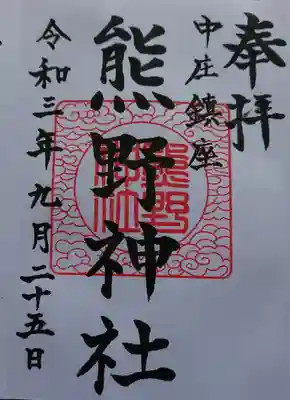 奉拝
中庄鎮座
熊野神社
令和三年九月二十五日
熊野
神社